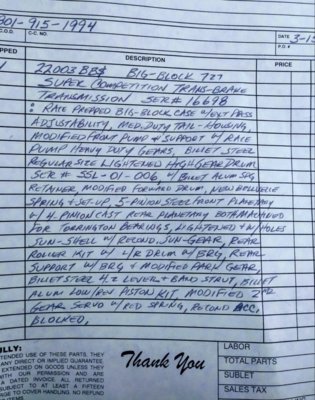 801-915-1994
C.O.D. C.C. NO. DATE 3-15
P.O.#
PPED DESCRIPTION PRICE
1 22003 BB$ BIG-BLOCK 727
SUPER COMPETITION TRANS-BRAKE
TRANSMISSION SER# 16698
: RACE PREPPED BIG-BLOCK CASE W/EXT PASS
ADJUSTABILITY, MED. DUTY TAIL-HOUSING,
MODIFIED FRONT PUMP & SUPPORT W/ RACE
PUMP HEAVY DUTY GEARS, BILLET STEEL
REGULAR SIZE LIGHTENED HIGH GEAR DRUM
SER # SSL-01-006, W/ BILLET ALUM SPG
RETAINER, MODIFIED FORWARD DRUM, NEW BELLVILLE
SPRING & SET-UP, 5-PINION STEEL FRONT PLANETARY
W/ 4 PINION CAST REAR PLANETARY BOTH MACHINED
FOR TORRINGTON BEARINGS, LIGHTENED & W/ HOLES
SUN-SHELL W/ RECOND, SUN-GEAR, REAR
ROLLER KIT W/ L/R DRUM W/ BRG, REAR
SUPPORT W/ BRG & MODIFIED PARK GEAR,
BILLET STEEL 4.2 LEVER & BAND STRUT, BILLET
ALUM LOW/REV PISTON KIT, MODIFIED 2ND
GEAR SERVO W/ RED SPRING, RECOND ACC,
BLOCKED,
ULLY: LABOR
TENDED USE OF THESE PARTS, THEY
ANY DIRECT OR IMPLIED GUARANTEE. TOTAL PARTS
EXTENDED ON GOODS UNLESS THEY Thank You
WITH OUR PERMISSION AND ARE SUBLET
A DATED INVOICE. ALL RETURNED
SUBJECT TO AT LEAST A FIFTEEN SALES TAX
GE TO COVER HANDLING. NO REFUND